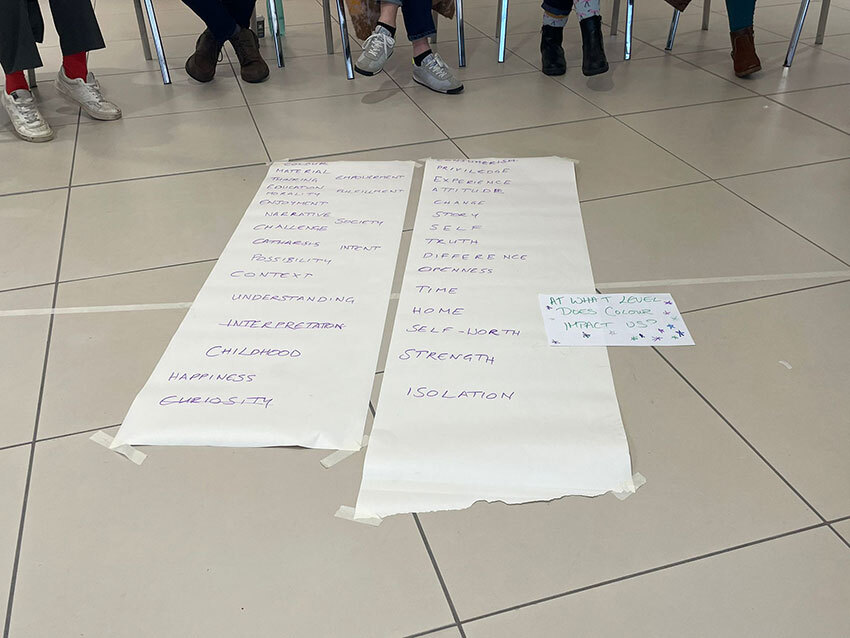 COLOUR
MATERIAL
THINKING EMPOWERMENT
EDUCATION
MORALITY FULFILLMENT
ENJOYMENT
NARRATIVE
SOCIETY
CHALLENGE
CATHARSIS INTENT
POSSIBILITY
CONTEXT
UNDERSTANDING
INTERPRETATION
CHILDHOOD
HAPPINESS
CURIOSITY
CONSUMERISM
PRIVILEDGE
EXPERIENCE
ATTITUDE
CHANGE
STORY
SELF
TRUTH
DIFFERENCE
OPENNESS
TIME
HOME
SELF-WORTH
STRENGTH
ISOLATION
AT WHAT LEVEL
DOES COLOUR
IMPACT US?